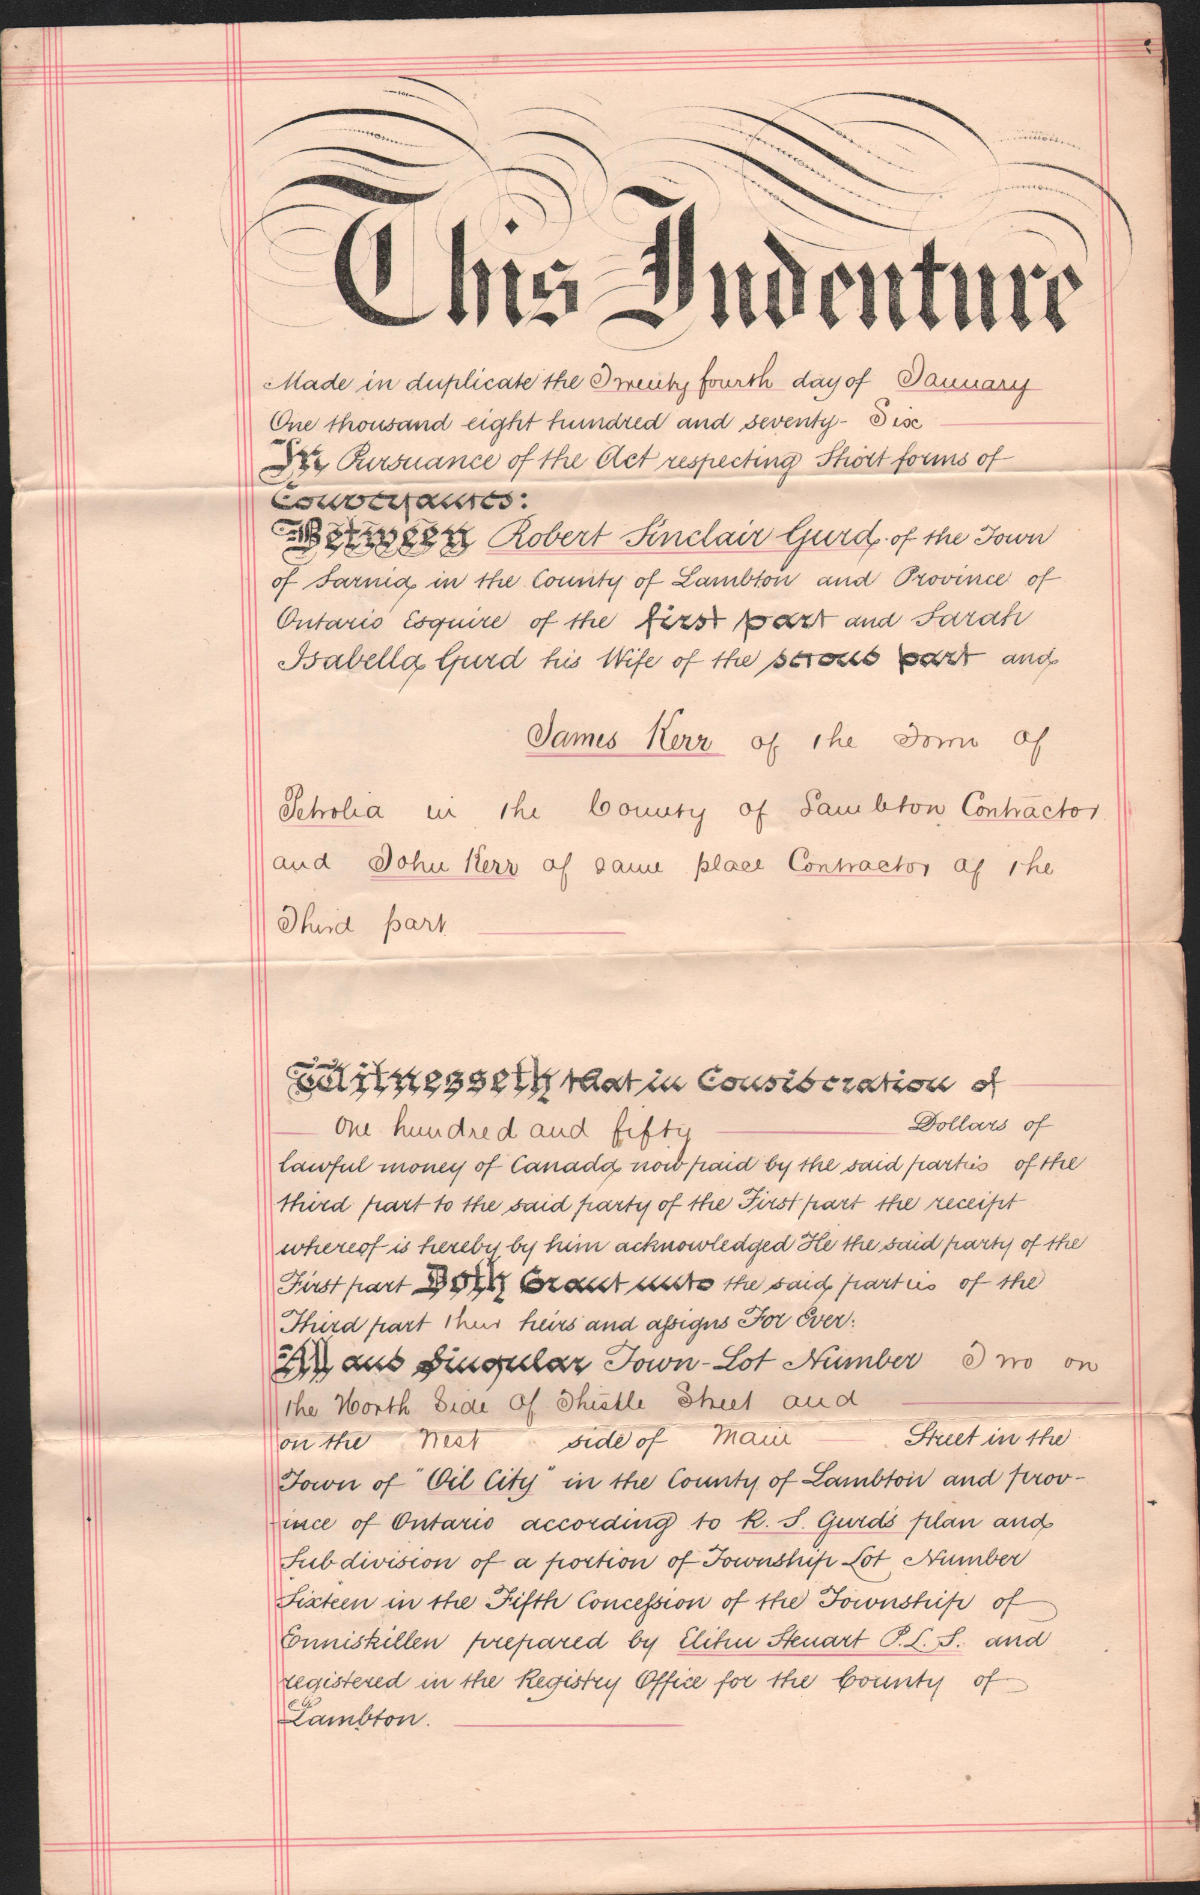 This Indenture
Made in duplicate the Twenty fourth day of January
One thousand eight hundred and seventy- Six
In Pursuance of the Act respecting Short forms of
Conveyances:
Between Robert Sinclair Gurd of the Town
of Sarnia in the County of Lambton and Province of
Ontario Esquire of the first part and Sarah
Isabella Gurd his Wife of the second part and
James Kerr of the Town of
Petrolia in the County of Lambton Contractor
and John Kerr of same place Contractor of the
Third part
Witnesseth that in Consideration of
One hundred and fifty Dollars of
lawful money of Canada now paid by the said parties of the
third part to the said party of the First part the receipt
whereof is hereby by him acknowledged He the said party of the
First part Doth Grant unto the said parties of the
Third part their heirs and assigns For Ever:
All and Singular Town-Lot Number Two on
the North Side of Thistle Street and
on the West side of Main Street in the
Town of "Oil City" in the County of Lambton and prov-
ince of Ontario according to R. S. Gurd's plan and
Subdivision of a portion of Township Lot Number
Sixteen in the Fifth Concession of the Township of
Enniskillen prepared by Elihu Steuart P.L.S. and
registered in the Registry Office for the County of
Lambton.